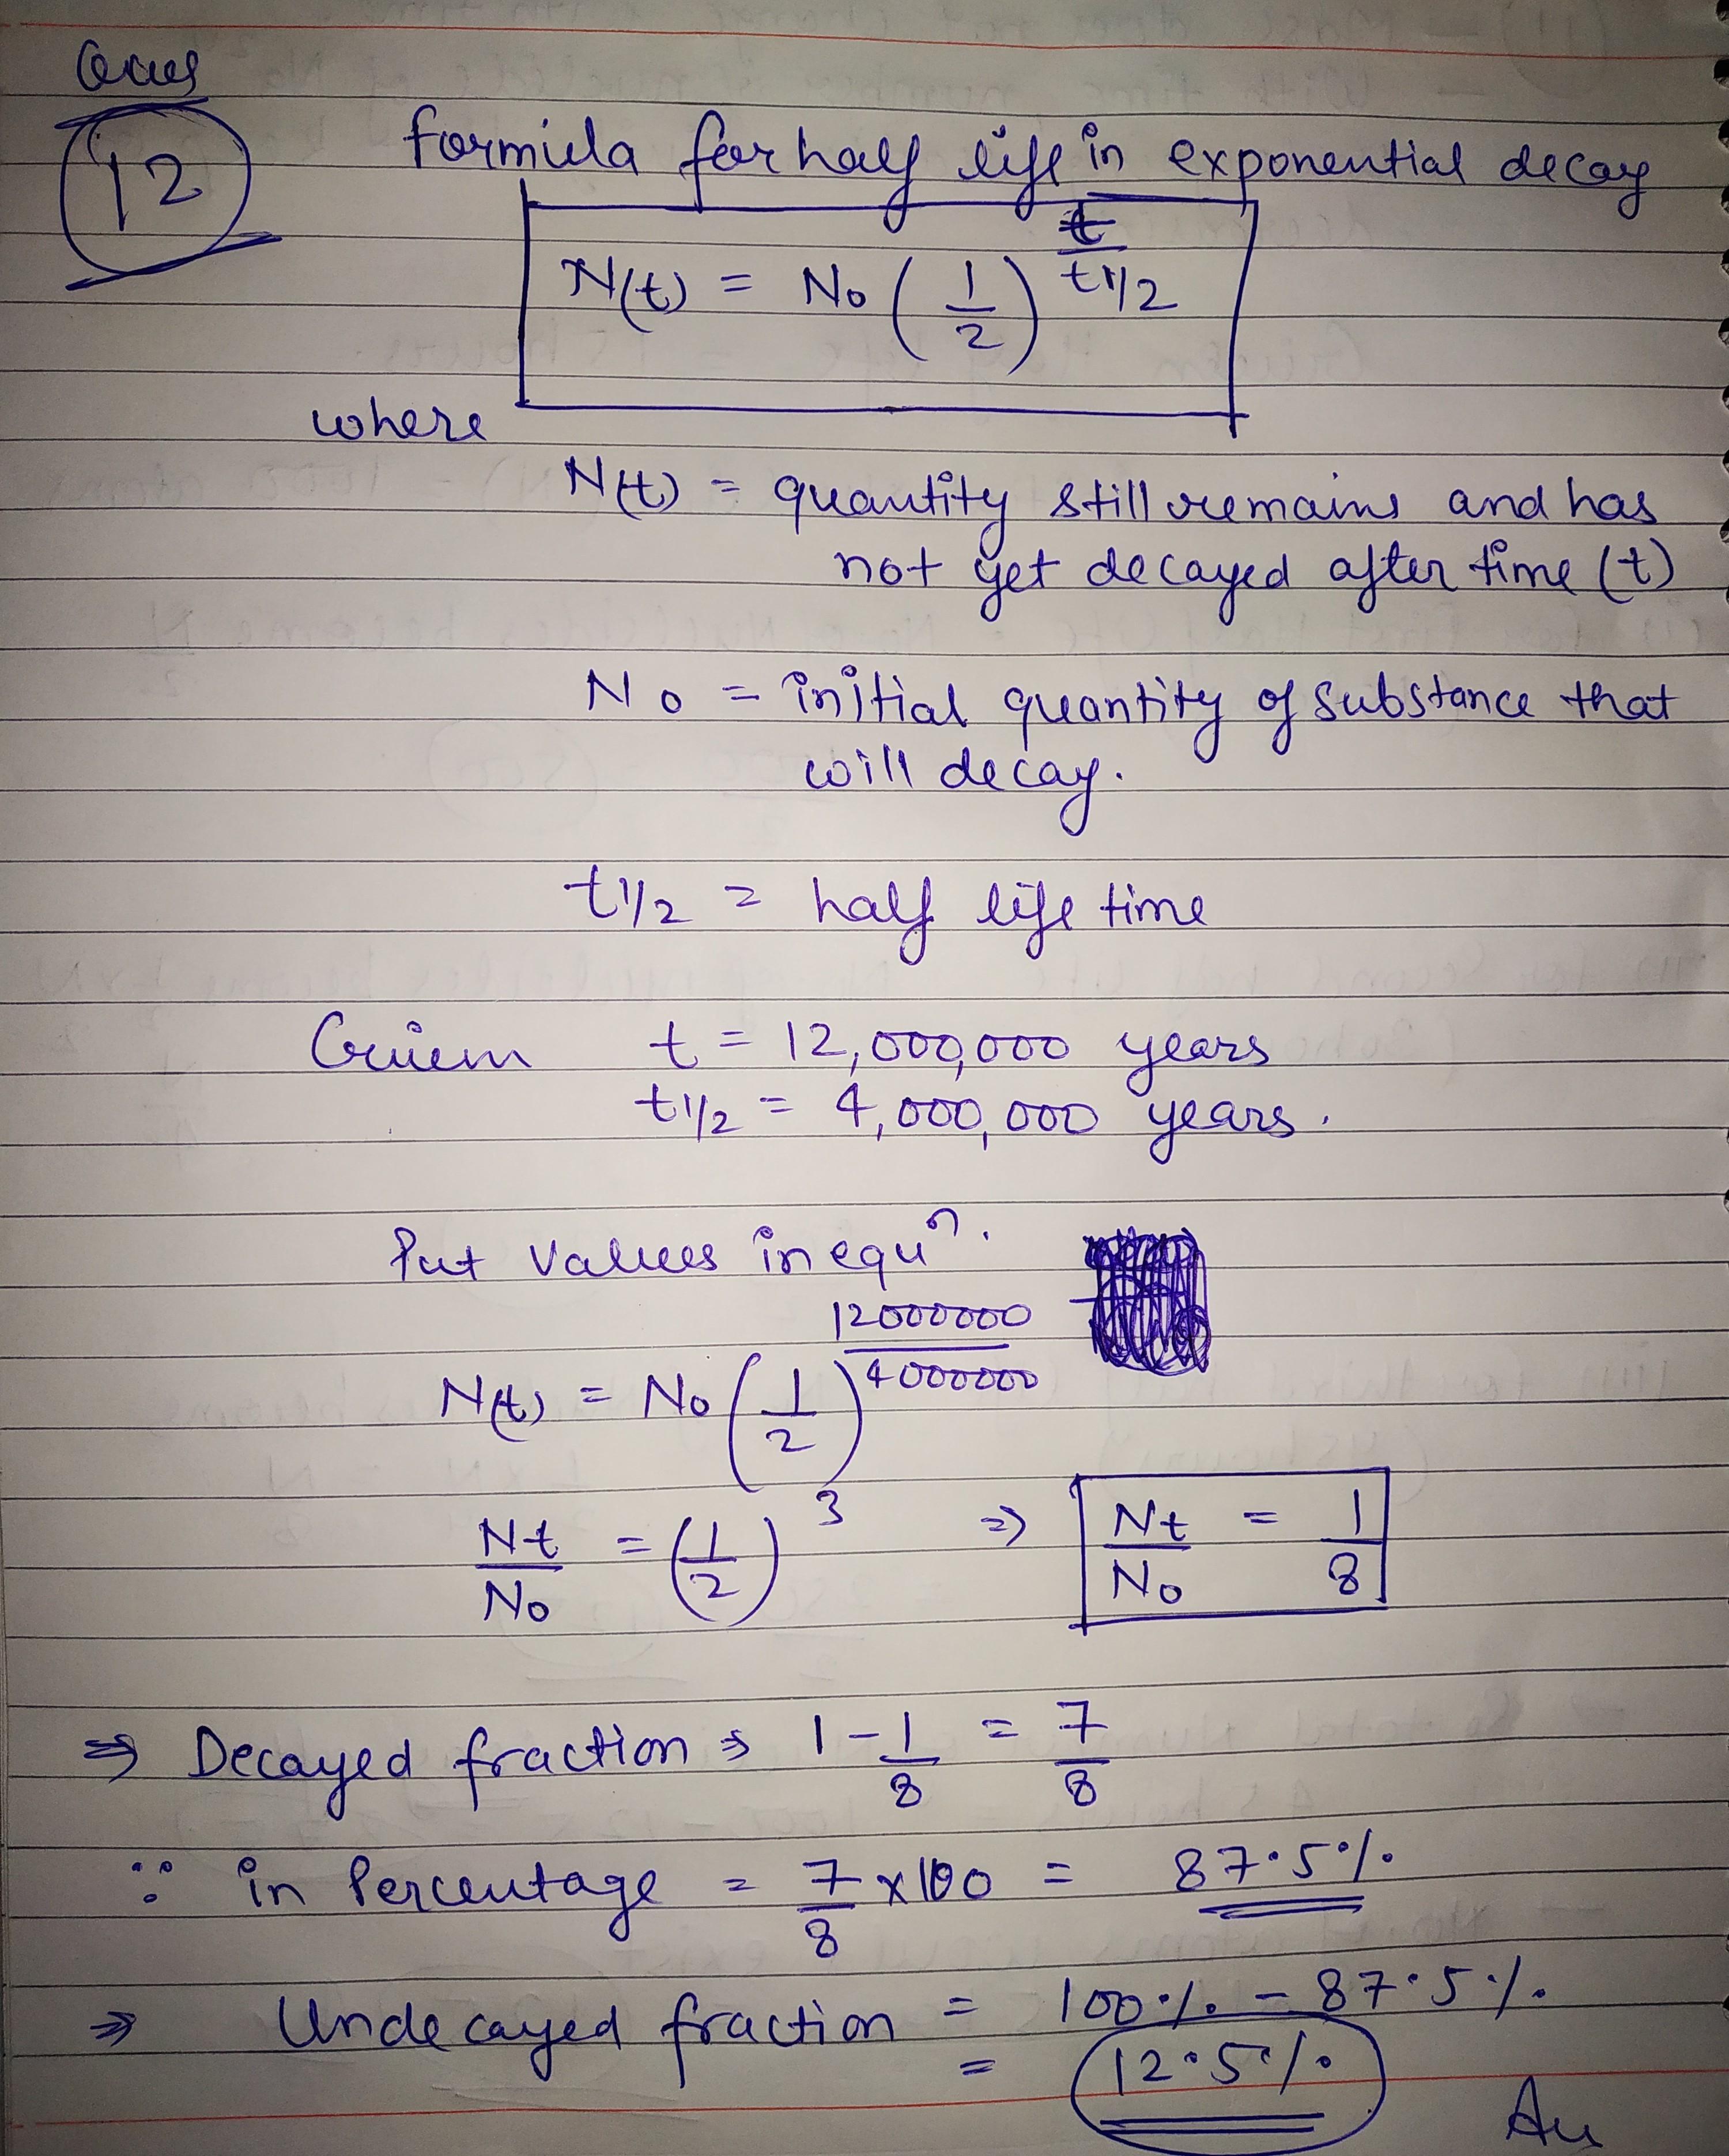 Ques
12
formula for half life in exponential decay
N(t) = No (1/2)^t/t1/2
where
N(t) = quantity still remains and has
not yet decayed after time (t)
No = initial quantity of substance that
will decay.
t1/2 = half life time
Given t = 12,000,000 years
t1/2 = 4,000,000 years.
Put Values in equⁿ.
N(t) = No (1/2)^12000000/4000000
Nt/No = (1/2)^3 ⇒ Nt/No = 1/8
⇒ Decayed fraction ⇒ 1 - 1/8 = 7/8
∵ in Percentage = 7/8 x 100 = 87.5%
⇒ Undecayed fraction = 100% - 87.5%
= 12.5%